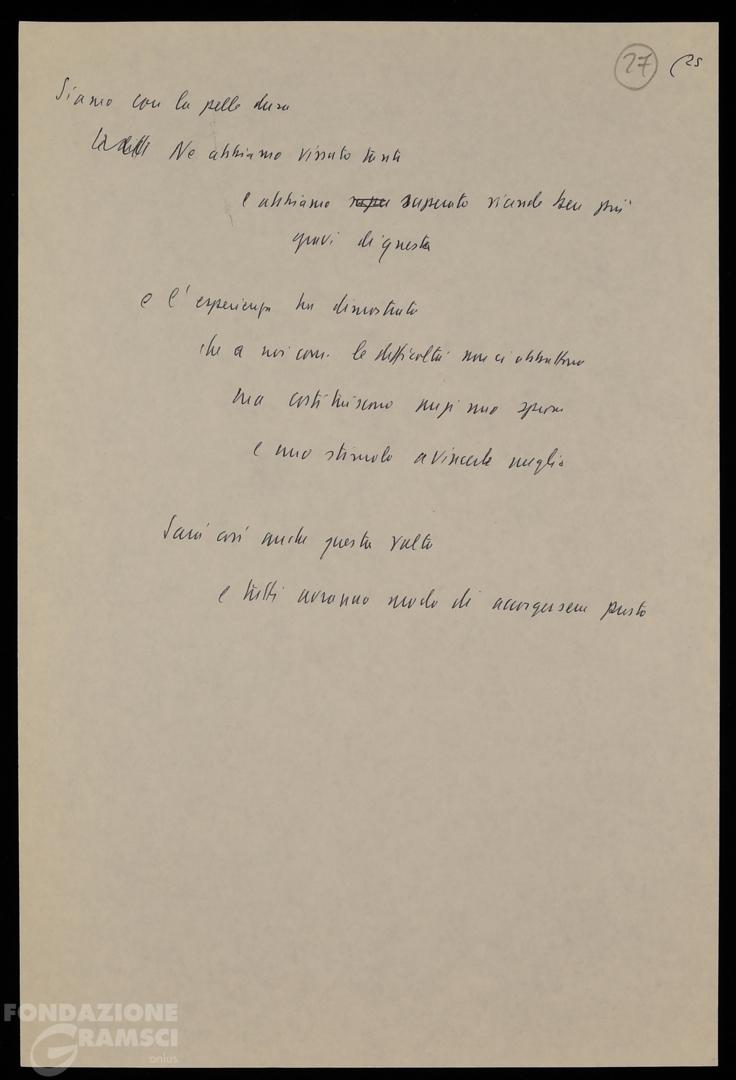 27 (25
Siamo con la pelle dura
Ne abbiamo vissuto tanti
e abbiamo supe superato vicende ben più
gravi di questa
e l'esperienza ha dimostrato
che a noi com. le difficoltà non ci abbattono
ma costituiscono anzi uno sprone
e uno stimolo a vincerle meglio
Sarà così anche questa volta
e tutti avranno modo di accorgersene presto
FONDAZIONE
GRAMSCI
onlus